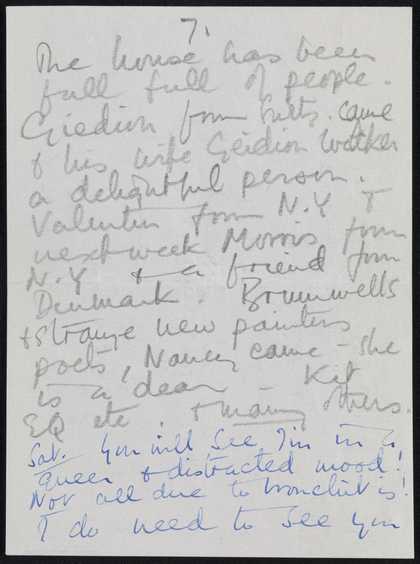 7.
The house has been
full full of people.
Giedion from Switz. came
& his wife Geidion Walker
a delightful person.
Valentin from N.Y &
next week Morris from
N.Y & a friend from
Denmark. Brumwells
& strange new painters
poets, Nancy came – she
is a dear – Kit
EQ etc. & many others.
Sat. You will see I'm in a
queer & distracted mood!
Not all due to bronchitis!
I do need to see you